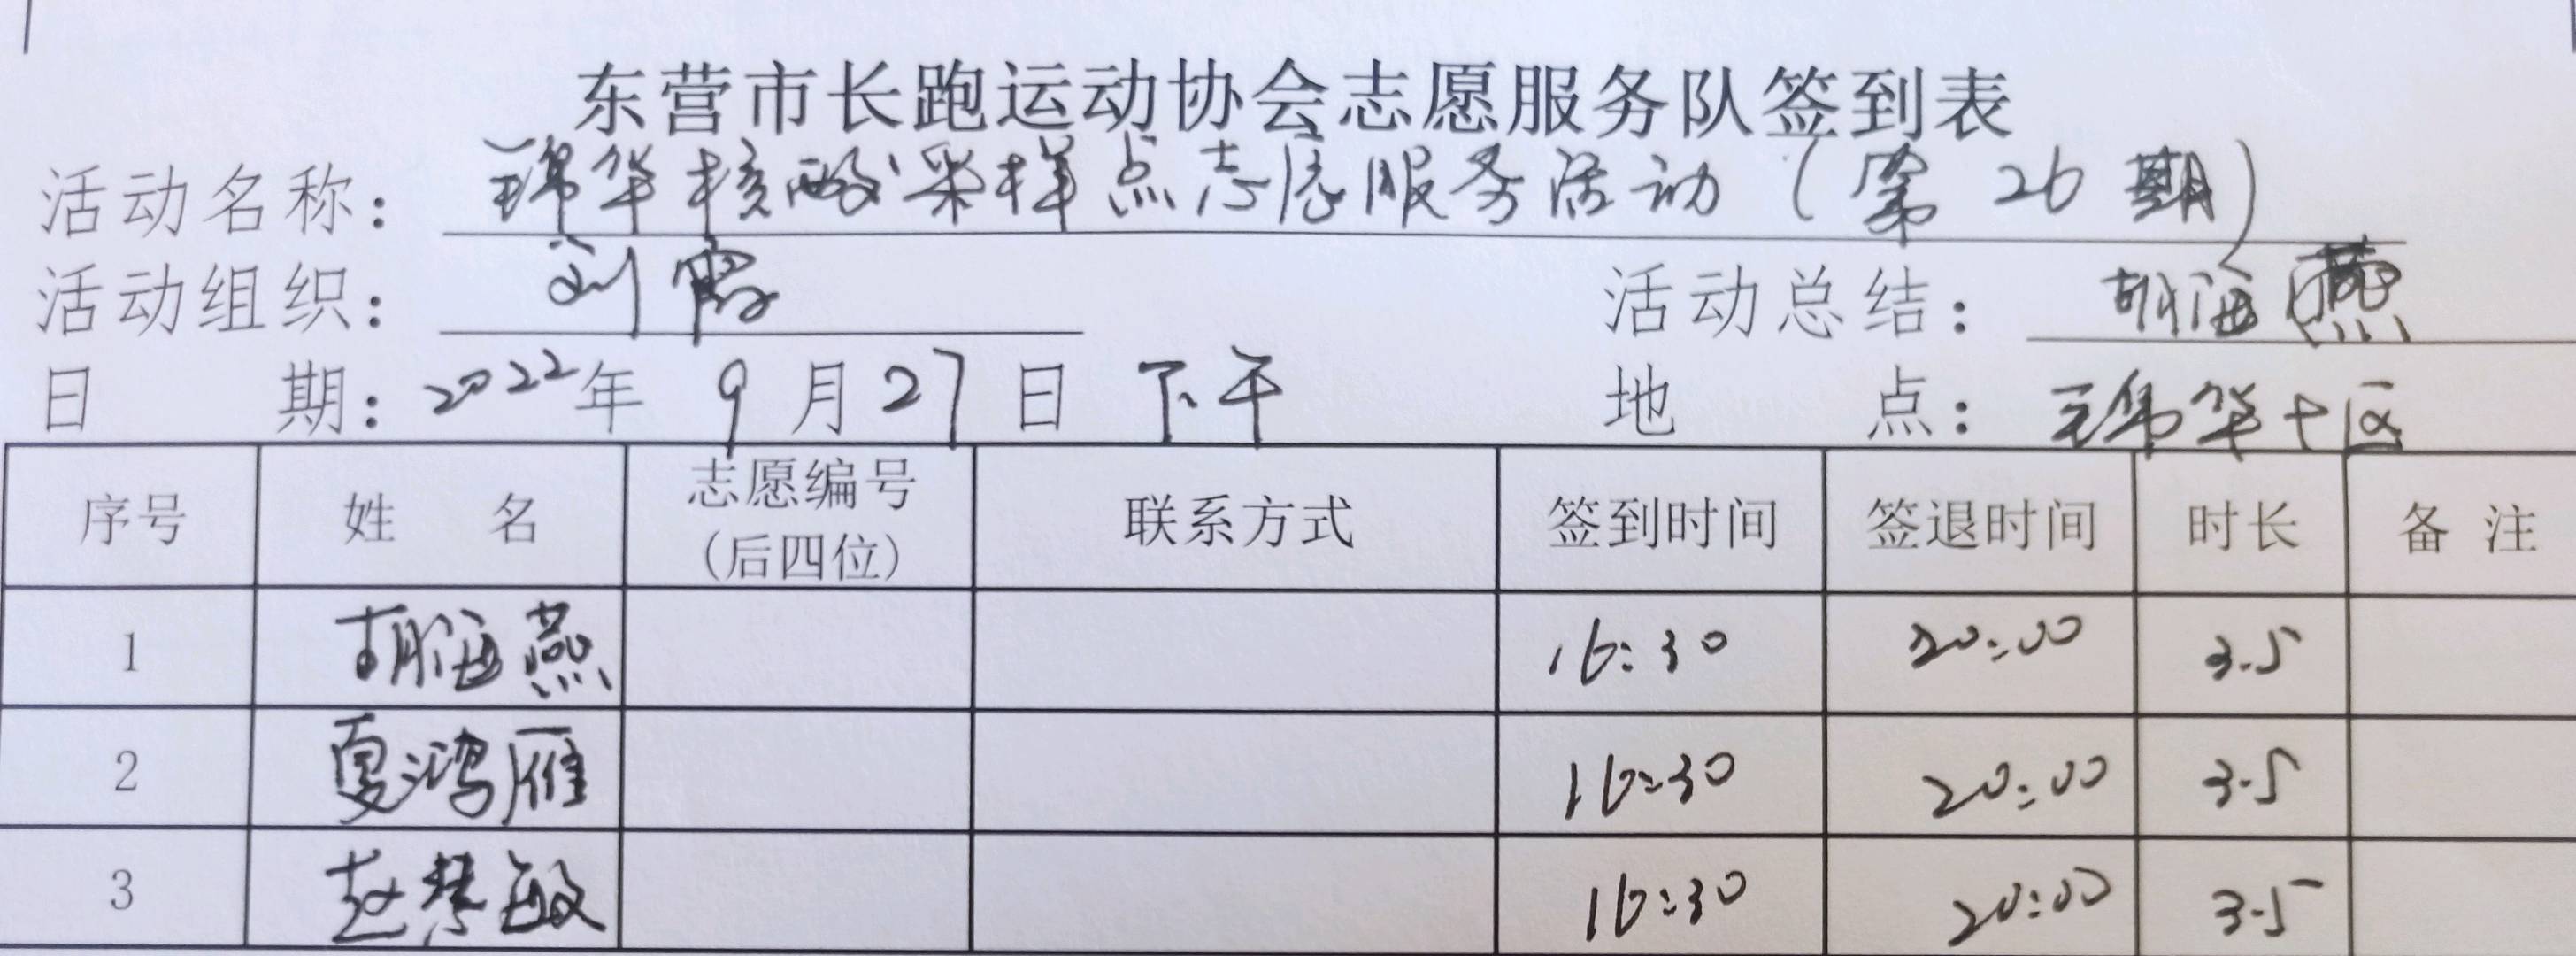 东营市长跑运动协会志愿服务队签到表
活动名称：锦华核酸采样点志愿服务活动（第26期）
活动组织：刘霞 活动总结：胡海燕
日 期：2022年 9月27日 下午 地 点：锦华十区
序号 姓 名 志愿编号（后四位） 联系方式 签到时间 签退时间 时长 备 注
1 胡海燕 16:30 20:00 3.5
2 夏鸿雁 16:30 20:00 3.5
3 赵梦敏 16:30 20:00 3.5